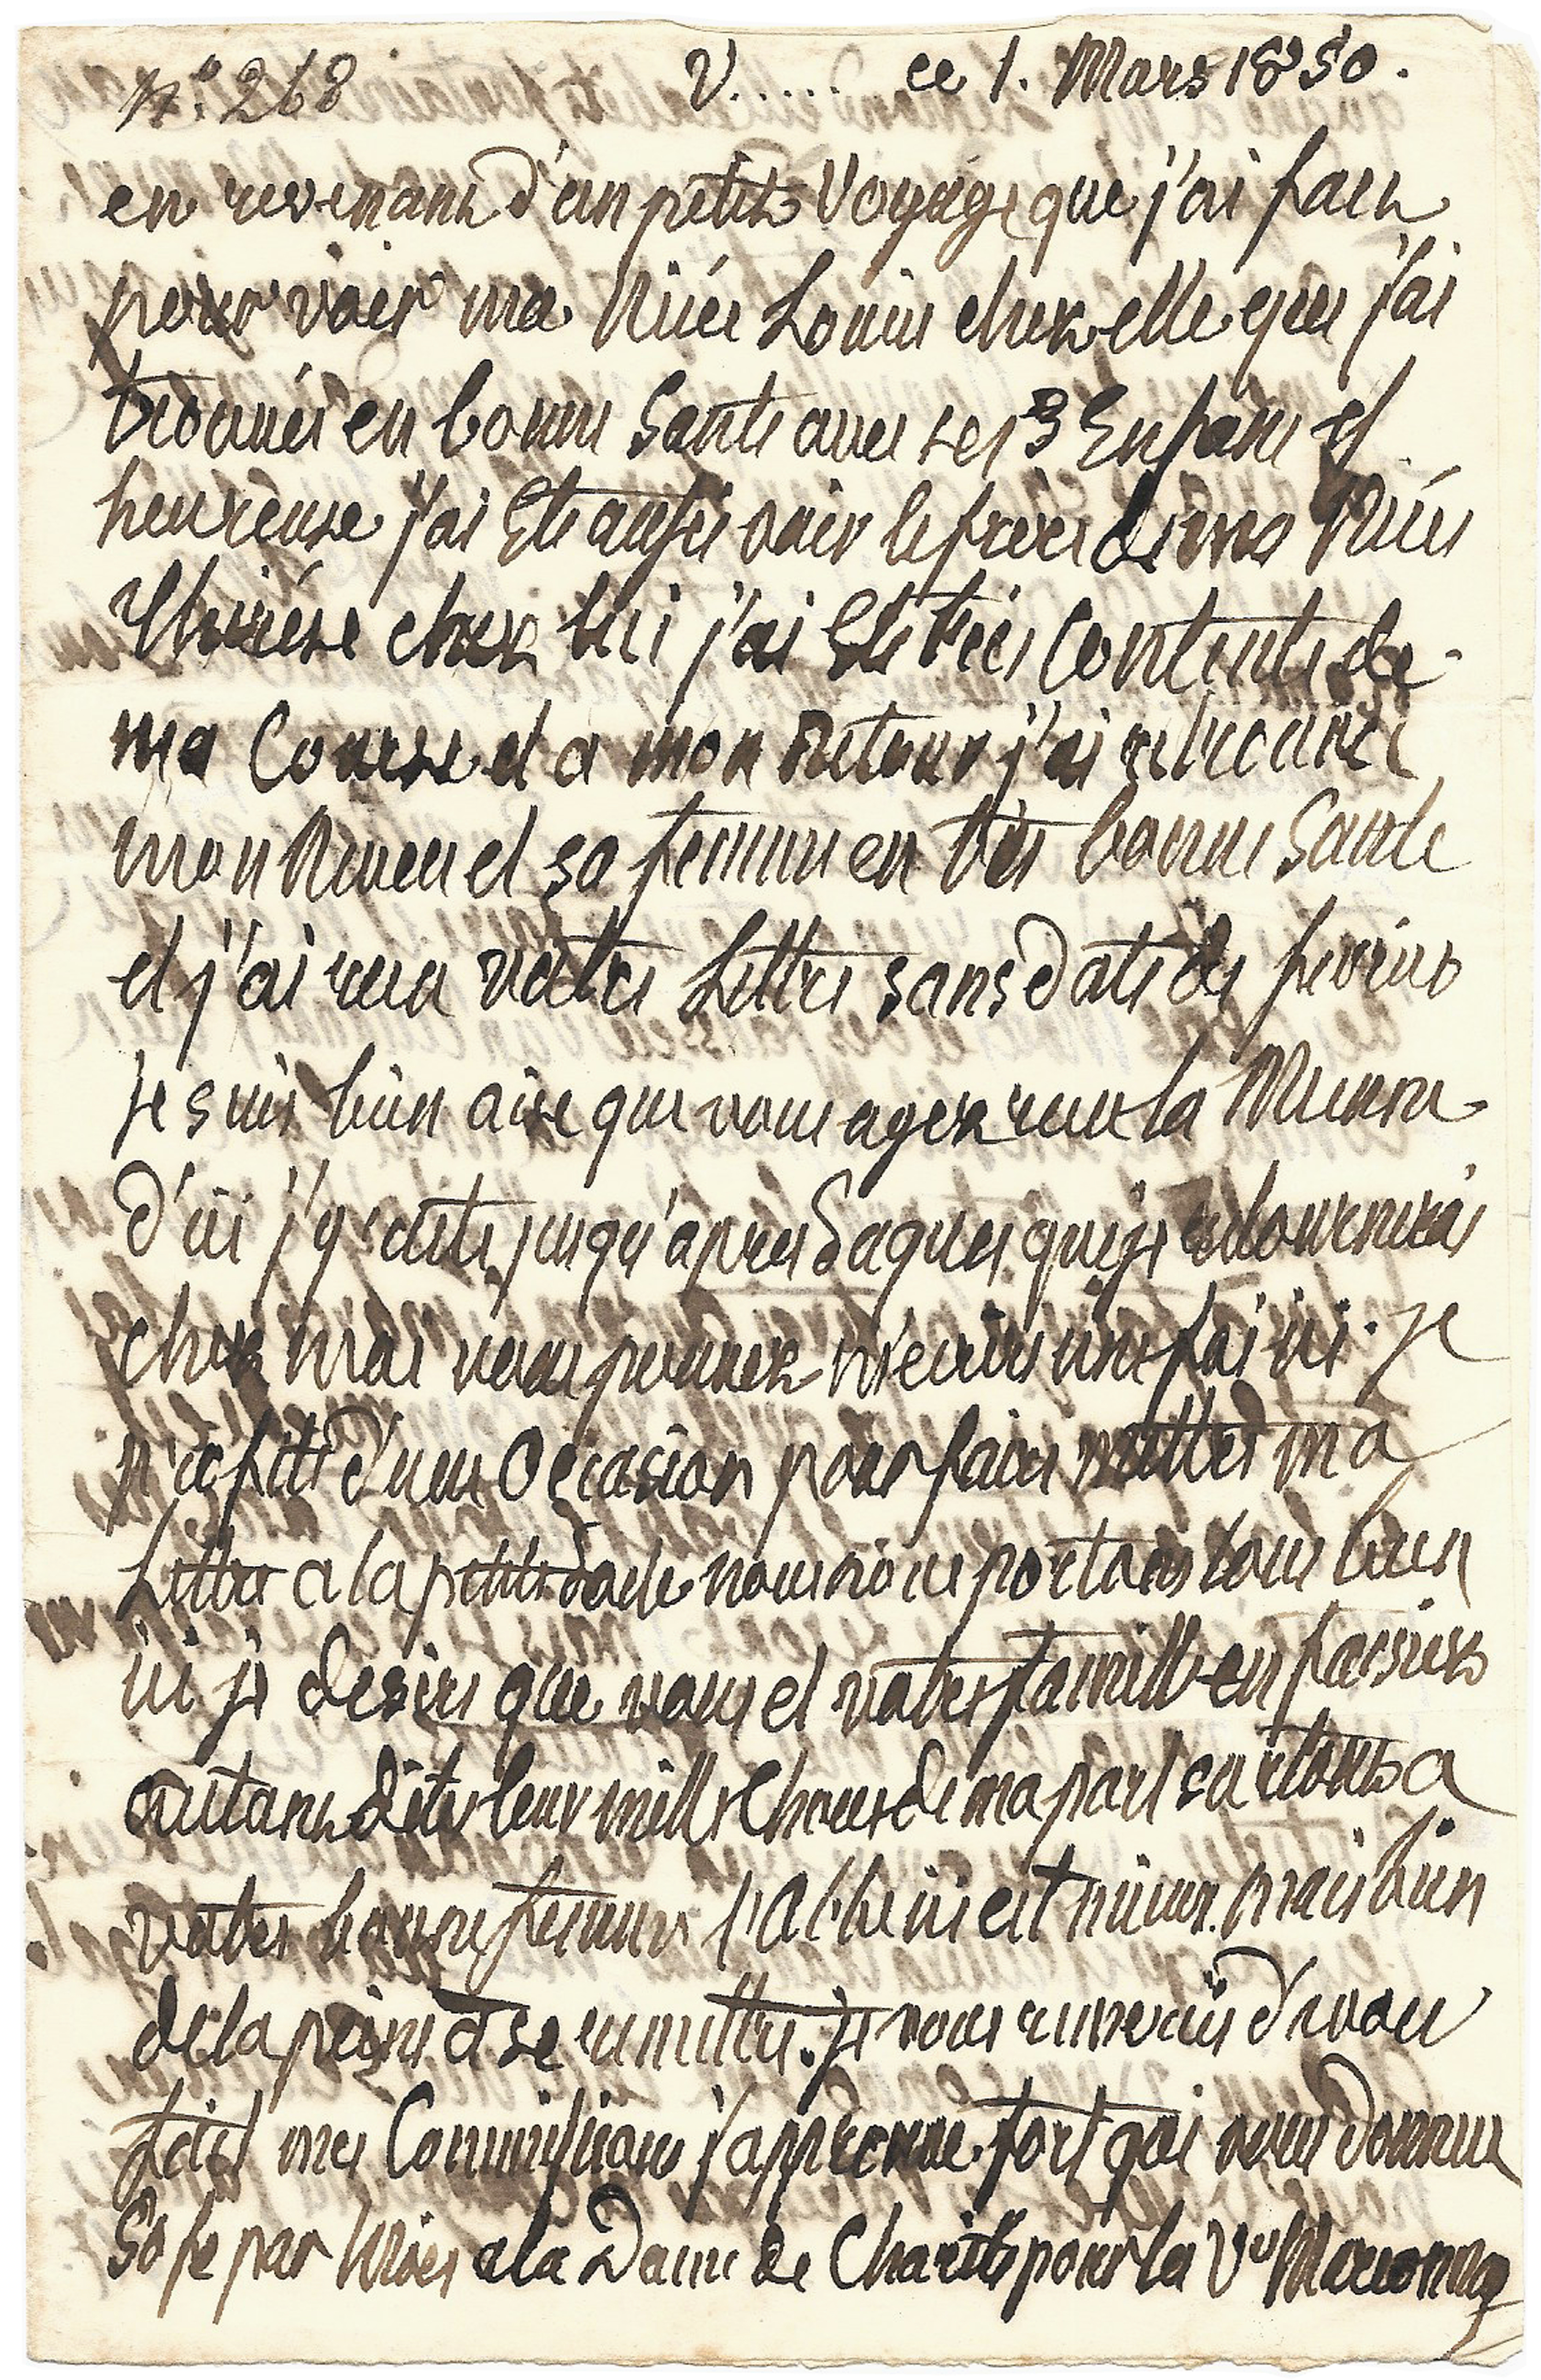 N.° 268 V...... ce 1. Mars 1850.
en revenant d'un petit Voyage que j'ai fait
pour voir ma Niéce Louise chez elle que j'ai
trouvée en bonne Sante avec ses 3 Enfans et
heureuse j'ai Ete aussi voir le frere de ma Niéce
Thérése chez lui j'ai Ete trés Contente de
ma Course et a mon Retour j'ai retrouvé
mon Neveu et sa femme en trés bonne Sante
et j'ai recu votre Lettre sans date de fevrier
Je suis bien aise que vous ayez recu la Mienne
d'ici j'y reste jusqu'apres Paques que je retournerai
chez moi vous pouvez m'ecrire une fois ici. je
profite d'une Occasion pour faire mettre ma
Lettre a la petite nous nous portons tous bien
ici je desire que vous et votre famille en fassiez
autant dites leur mille Choses de ma part surtout a
votre bonne femme l'Abbé ici est mieux mais bien
de la peine a se remettre. je vous remercie d'avoir
fait mes Commissions j'approuve fort que vous donniez
50 fr par Mois a la Dame de Charité pour la Ve